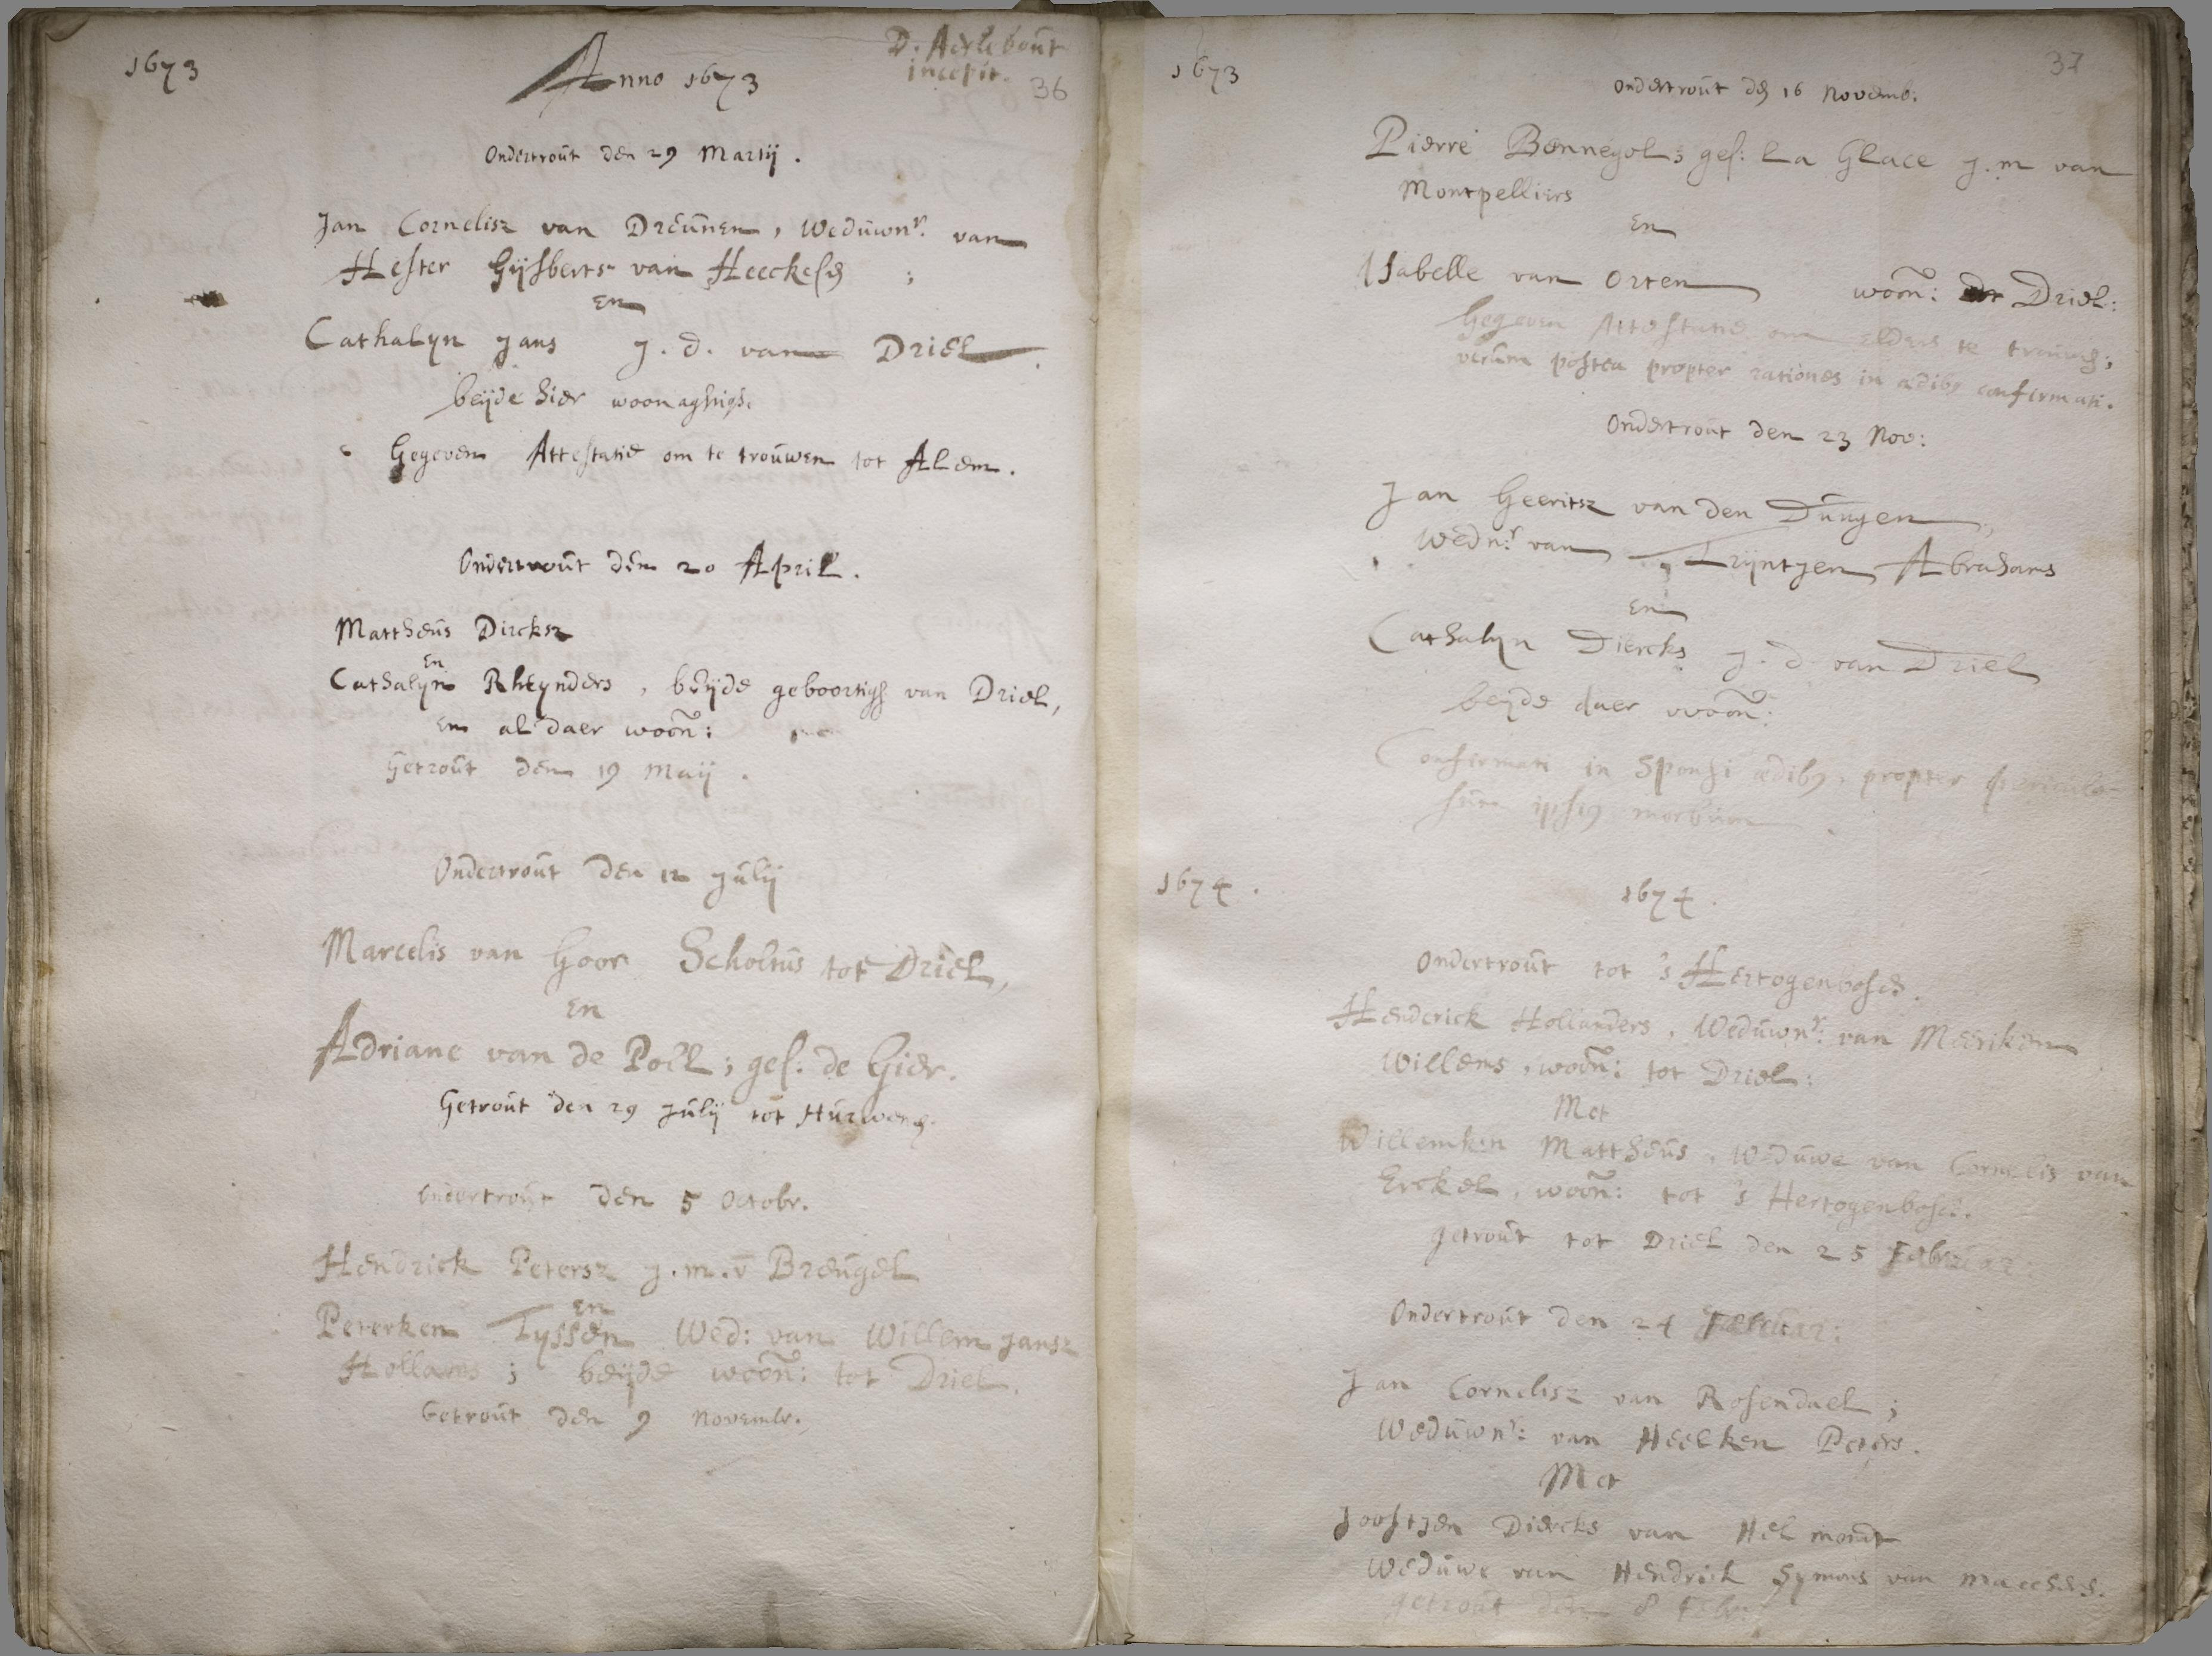 1673
Anno 1673
D. Aerlebout
incepit.
36
Ondertrout den 29 Martij.
Jan Cornelisz van Dreunen, Weduwnr. van
Hester Gijsberts van Heeckesch ;
En
Cathalyn Jans J. d. van Driel.
beijde hier woonaghtigh.
Gegeven Attestatie om te trouwen tot Alem.
Ondertrout den 20 April.
Mattheus Dircksz
En
Cathalyn Rheynders, beijde geboortigh van Driel,
en aldaer woon:
Getrout den 19 Maij.
Ondertrout den 12 Julij
Marcelis van Goor Scholtus tot Driel,
En
Adriane van de Poll; ges: de Gier.
Getrout den 29 Julij tot Hurwenen.
Ondertrout den 5 Octobr.
Hendrick Petersz j.m. v Breugel
En
Peterken Tyssen Wed: van Willem Jansz
Hollans; beijde woon: tot Driel.
Getrout den 9 Novembr.
1673
37
Ondertrout den 16 Novemb:
Pierre Bonnegol; ges: La Glace j.m van
Montpelliers
En
Isabelle van Orten woon: tot Driel:
Gegeven Attestatie om elders te trouwen;
verum postea propter rationes in ædibus confirmati.
Ondertrout den 23 Nov:
Jan Geeritsz van den Dungen,
Wednr. van Trijntjen Abrahams
En
Cathalyn Diercks J. d. van Driel
beijde daer woon:
Confirmati in Sponsi ædibus, propter periculo-
sum ipsius morbum.
1674.
1674.
Ondertrout tot 's Hertogenbosch.
Henderick Hollanders, Weduwnr: van Meeriken
Willems, woon: tot Driel:
Met
Willemken Mattheus, Weduwe van Cornelis van
Erckel, woon: tot 's Hertogenbosch.
getrout tot Driel den 25 Februar:
Ondertrout den 24 Februar:
Jan Cornelisz van Rosendael;
Weduwnr: van Heelken Peters.
Met
Joostjen Diercks van Helmondt
Weduwe van Hendrick Symons van
getrout den 8